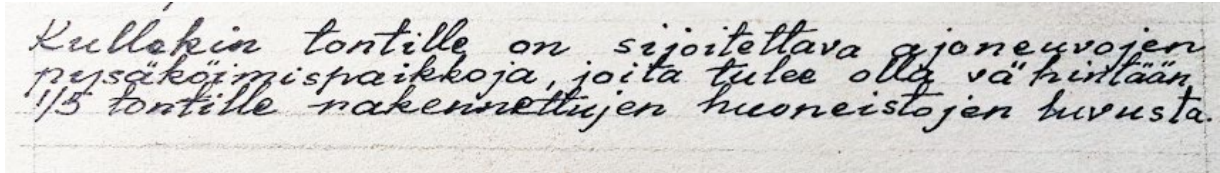 Kullekin tontille on sijoitettava ajoneuvojen
pysäköimispaikkoja, joita tulee olla vähintään
1/5 tontille rakennettujen huoneistojen luvusta.